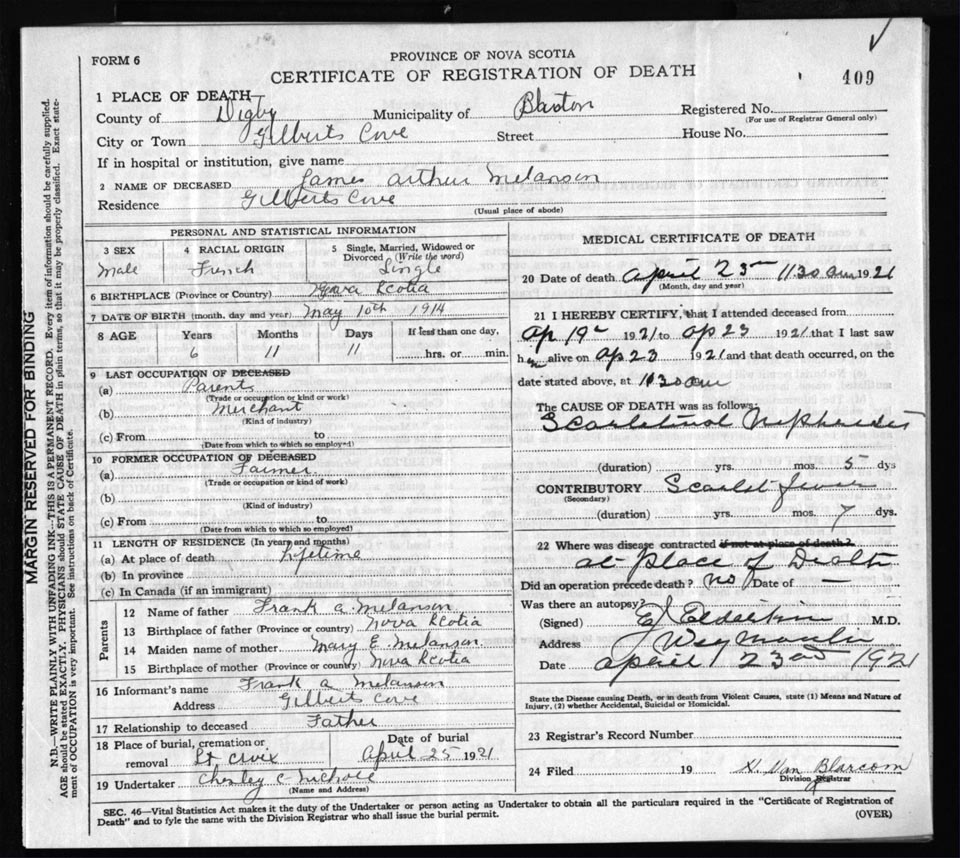 FORM 6
PROVINCE OF NOVA SCOTIA
CERTIFICATE OF REGISTRATION OF DEATH
409
1 PLACE OF DEATH
County of Digby Municipality of Registered No.
(For use of Registrar General only)
City or Town Gilberts Cove Street House No.
If in hospital or institution, give name
2 NAME OF DECEASED James Arthur Melanson
Residence Gilberts Cove
(Usual place of abode)
PERSONAL AND STATISTICAL INFORMATION
3 SEX 4 RACIAL ORIGIN 5 Single, Married, Widowed or Divorced (Write the word)
Male French Single
6 BIRTHPLACE (Province or Country) Nova Scotia
7 DATE OF BIRTH (month, day and year) May 10th 1914
8 AGE Years Months Days If less than one day,
6 11 11 hrs. or min.
9 LAST OCCUPATION OF DECEASED
(a) Parents
(Trade or occupation or kind or work)
(b) Merchant
(Kind of industry)
(c) From to
(Date from which to which so employed)
10 FORMER OCCUPATION OF DECEASED
(a) Farmer
(Trade or occupation or kind of work)
(b)
(Kind of industry)
(c) From to
(Date from which to which so employed)
11 LENGTH OF RESIDENCE (In years and months)
(a) At place of death Lifetime
(b) In province
(c) In Canada (if an immigrant)
Parents
12 Name of father Frank A. Melanson
13 Birthplace of father (Province or country) Nova Scotia
14 Maiden name of mother Mary E. Melanson
15 Birthplace of mother (Province or country) Nova Scotia
16 Informant's name Frank A Melanson
Address Gilberts Cove
17 Relationship to deceased Father
18 Place of burial, cremation or removal St Croix Date of burial April 25 1921
19 Undertaker C Nichole
(Name and Address)
MEDICAL CERTIFICATE OF DEATH
20 Date of death April 23 1130 am 1921
(Month, day and year)
21 I HEREBY CERTIFY, that I attended deceased from
Ap 19 1921 to Ap 23 1921 that I last saw
h alive on Ap 23 1921 and that death occurred, on the
date stated above, at 1130 am
The CAUSE OF DEATH was as follows:
Scarlatinal Nephritis
(duration) yrs. mos. 5 dys
CONTRIBUTORY Scarlet fever
(Secondary)
(duration) yrs. mos. 7 dys.
22 Where was disease contracted if not at place of death?
at place of Death
Did an operation precede death? No Date of —
Was there an autopsy?
(Signed) Elderkin M.D.
Address Weymouth
Date April 23rd 1921
State the Disease causing Death, or in death from Violent Causes, state (1) Means and Nature of
Injury, (2) whether Accidental, Suicidal or Homicidal.
23 Registrar's Record Number
24 Filed 19 H. Van Blarcom
Division Registrar
SEC. 46—Vital Statistics Act makes it the duty of the Undertaker or person acting as Undertaker to obtain all the particulars required in the "Certificate of Registration of
Death" and to fyle the same with the Division Registrar who shall issue the burial permit.
(OVER)
MARGIN RESERVED FOR BINDING
N.B.—WRITE PLAINLY WITH UNFADING INK—THIS IS A PERMANENT RECORD. Every item of information should be carefully supplied.
AGE should be stated EXACTLY. PHYSICIANS should STATE CAUSE OF DEATH in plain terms, so that it may be properly classified. Exact state-
ment of OCCUPATION is very important. See instructions on back of Certificate.